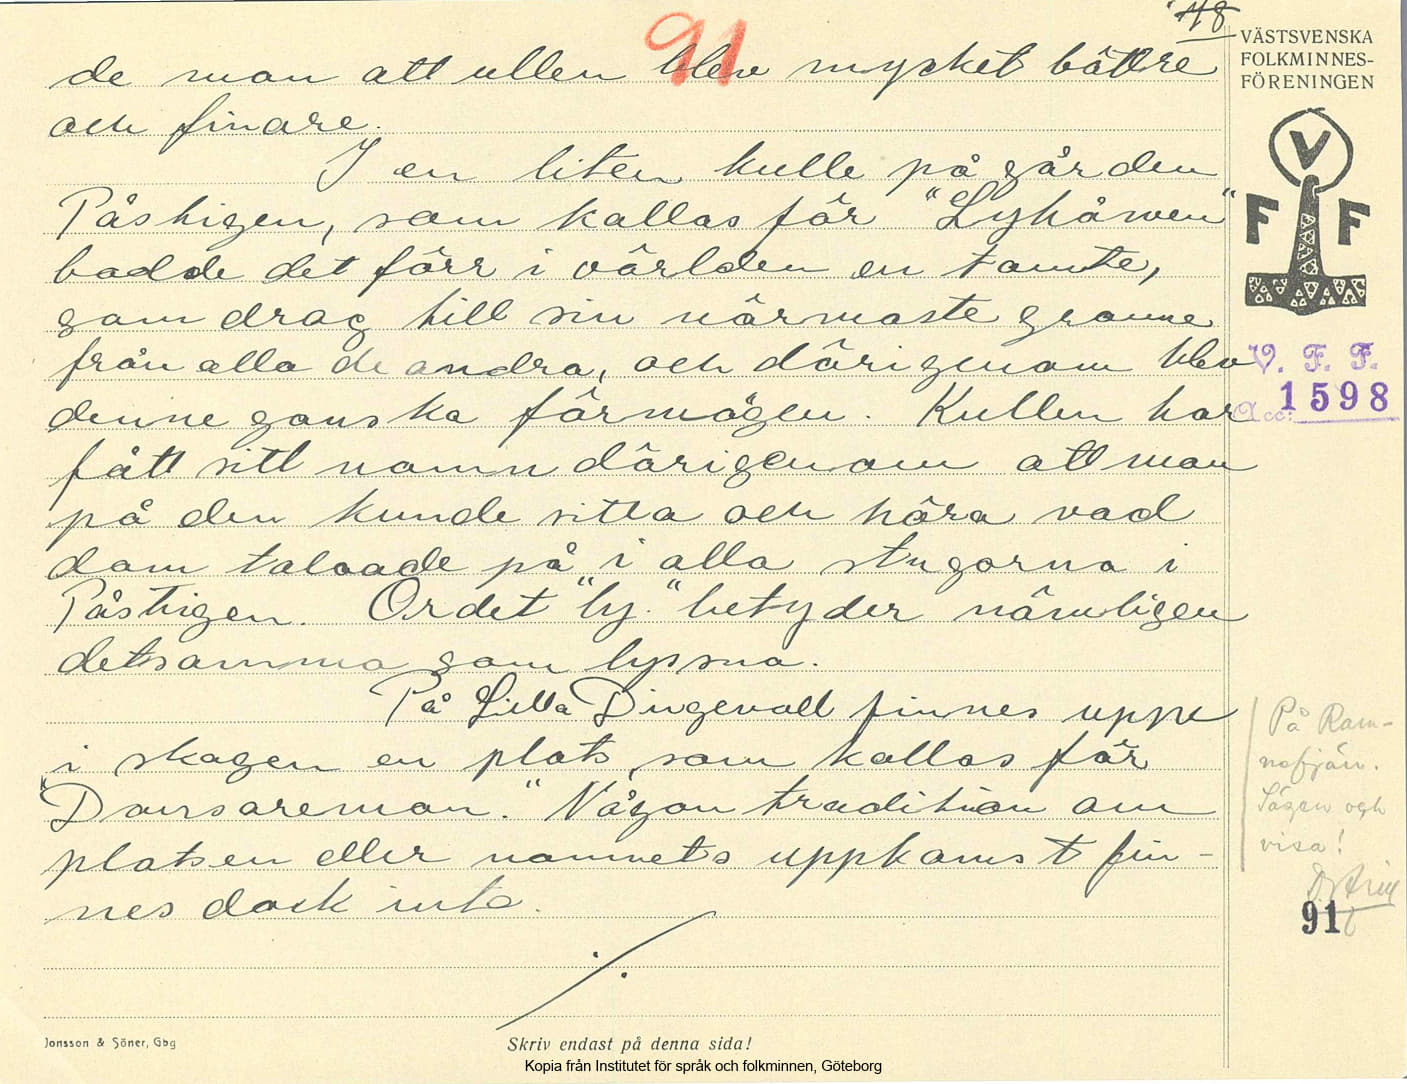 48
91
de man att ullen blev mycket bättre
och finare.
I en liten kulle på gården
Påstigen, som kallas för "Lyhåwen"
bodde det förr i världen en tomte,
som drog till sin närmaste granne
från alla de andra, och därigenom blev
denne ganska förmögen. Kullen har
fått sitt namn därigenom att man
på den kunde sitta och höra vad
dom talaade på i alla stugorna i
Påstigen. Ordet "ly" betyder nämligen
detsamma som lyssna.
På Lilla Dingevall finnes uppe
i skogen en plats, som kallas för
"Dansaremon." Någon tradition om
platsen eller namnets uppkomst fin-
nes dock inte.
VÄSTSVENSKA
FOLKMINNES-
FÖRENINGEN
V
F F
V. F. F.
Acc: 1598
På Ram-
Sägen och
visa!
91
Jonsson & Söner, Gbg
Skriv endast på denna sida!
Kopia från Institutet för språk och folkminnen, Göteborg